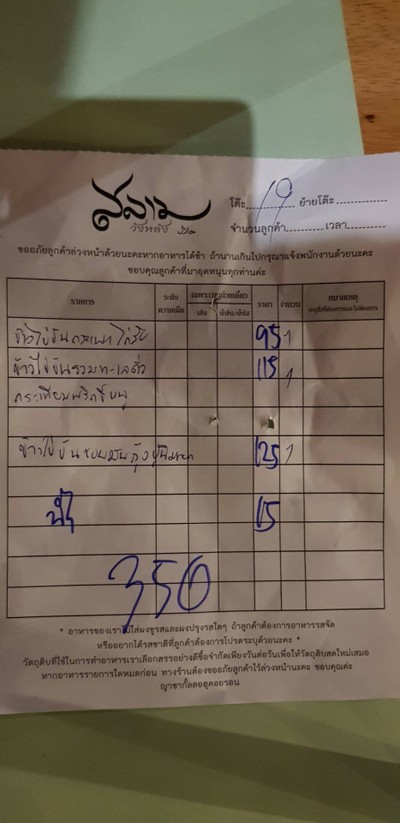 สลาม
วังหลัง
โต๊ะ.......19....... ย้ายโต๊ะ..............
จำนวนลูกค้า...........เวลา...........
ขออภัยลูกค้าล่วงหน้าด้วยนะคะหากอาหารได้ช้า ถ้านานเกินไปกรุณาแจ้งพนักงานด้วยนะคะ
ขอบคุณลูกค้าที่มาอุดหนุนทุกท่านค่ะ
รายการ ระดับความเผ็ด เฉพาะก๋วยเตี๋ยว ราคา จำนวน หมายเหตุ
เส้น
95 1
115 1
กระเทียมพริกขี้หนู
125 1
น้ำ 15
350
* อาหารของเราไม่ใส่ผงชูรสและผงปรุงรสใดๆ ถ้าลูกค้าต้องการอาหารรสจัด
หรืออยากได้รสชาติที่ลูกค้าต้องการโปรดระบุด้วยนะคะ *
วัตถุดิบที่ใช้ในการทำอาหารเราเลือกสรรอย่างดีซื้อจำกัดเพียงวันต่อวันเพื่อให้วัตถุดิบสดใหม่เสมอ
หากอาหารรายการใดหมดก่อน ทางร้านต้องขออภัยลูกค้าไว้ล่วงหน้านะคะ ขอบคุณค่ะ
ญาซากัลลอฮุคอยรอน